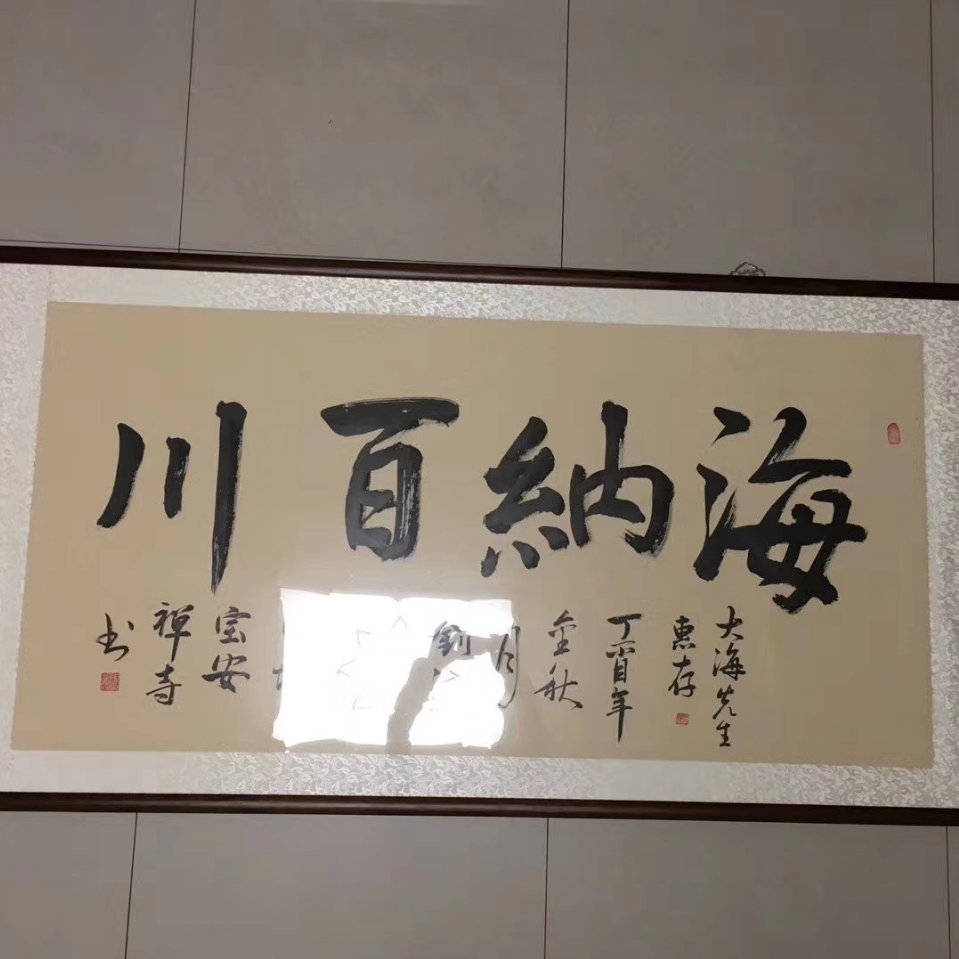 海納百川
大海先生
惠存
丁酉年
金秋
月
劉
宝安
禪寺
书